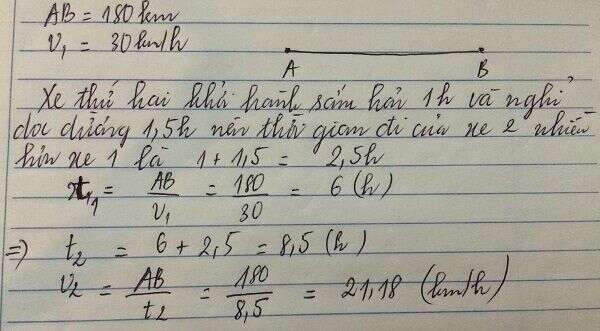 AB = 180km
V₁ = 30km/h
A B
Xe thứ hai khởi hành sớm hơn 1h và nghỉ
dọc đường 1,5h nên thời gian đi của xe 2 nhiều
hơn xe 1 là 1 + 1,5 = 2,5h
t₁ = AB/V₁ = 180/30 = 6 (h)
=> t₂ = 6 + 2,5 = 8,5 (h)
V₂ = AB/t₂ = 180/8,5 = 21,18 (km/h)